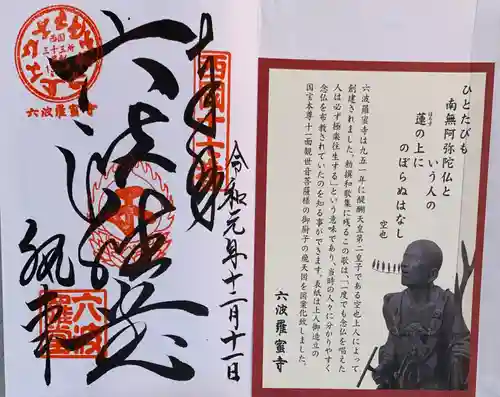 奉拝
令和元年十二月十一日
六波羅蜜寺
西国
三十三所
六波羅
ひとたびも
南無阿弥陀仏と
いう人の
蓮の上に
はちす
のぼらぬはなし
空也
六波羅蜜寺は九五一年に醍醐天皇第二皇子である空也上人によって
創建されました。勅撰和歌集に残るこの歌は、「一度でも念仏を唱えた
人は必ず極楽往生する」という意味であり、当時の人々に分かりやすく
念仏を布教されていたのを知る事ができます。表紙は上人御造立の
国宝本尊十一面観世音菩薩様の御厨子の飛天図を図案化致しました。
六波羅蜜寺